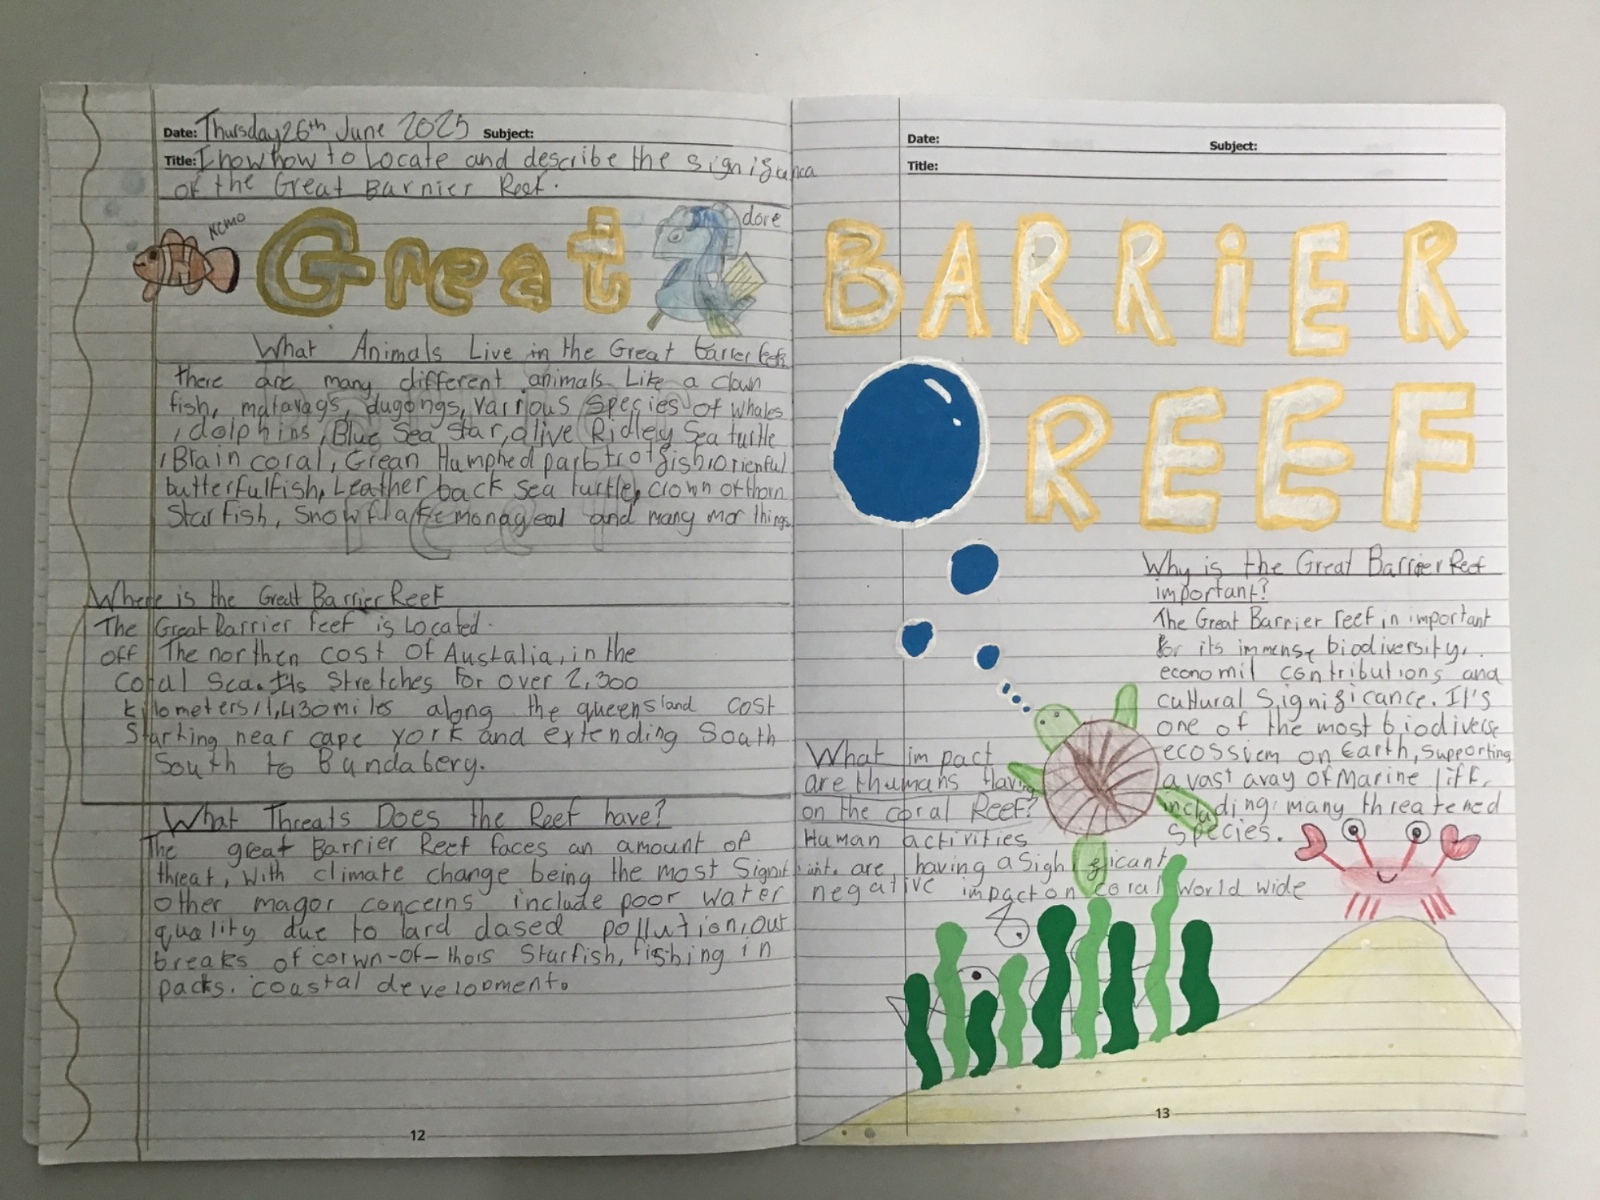 Date: Thursday 26th June 2025 Subject:
Title: I how how to Locate and describe the signifunca
of the Great Barnier Reef.
NEMO
Great
dore
What Animals Live in the Great barrier Reefs
there are many different animals Like a clown
fish, matavags, dugongs, various species of whales
, dolphins, Blue Sea star, olive Ridlely Sea turtle
, Brain coral, Grean Humphed parbtrotfish, orienful
butterfulfish, Leather back sea turtle, crown ofthorn
Starfish, Snowflake monageal and many mor things
Where is the Great Barrier Reef
The Great Barrier reef is Located.
off The northen cost of Austalia, in the
Coral Sea. Its Stretches for over 2,300
kilometers/1,430 miles along the queensland cost
Starting near cape york and extending South
South to Bundabery.
What Threats Does the Reef have?
The great Barrier Reef faces an amount of
threat, with climate change being the most Signifi
other magor concerns include poor water
quality due to lard dased pollution, out
breaks of corwn-of-thors Starfish, fishing in
packs. coastal development.
12
Date: Subject:
Title:
BARRiER
REEF
Why is the Great Barrier Reef
important?
The Great Barrier reef in important
for its immense biodiversity,
economil contributions and
cultural Significance. It's
one of the most biodiverse
ecossiem on Earth, supporting
a vast avay of Marine life,
including many threatened
species.
What impact
are thumans Having
on the coral Reef?
Human activities
are having a Significant
negative impact on coral world wide
13